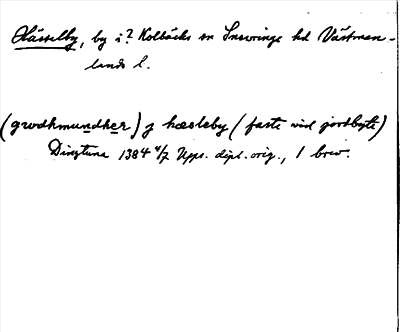 Hässelby, by i? Kolbäcks sn Snevringe hd Västman-
lands l.
(gwdhmundher) j hæsleby (faste vid jordbyte)
Dingtuna 1384 4/7 Upps. dipl. orig., 1 brev.